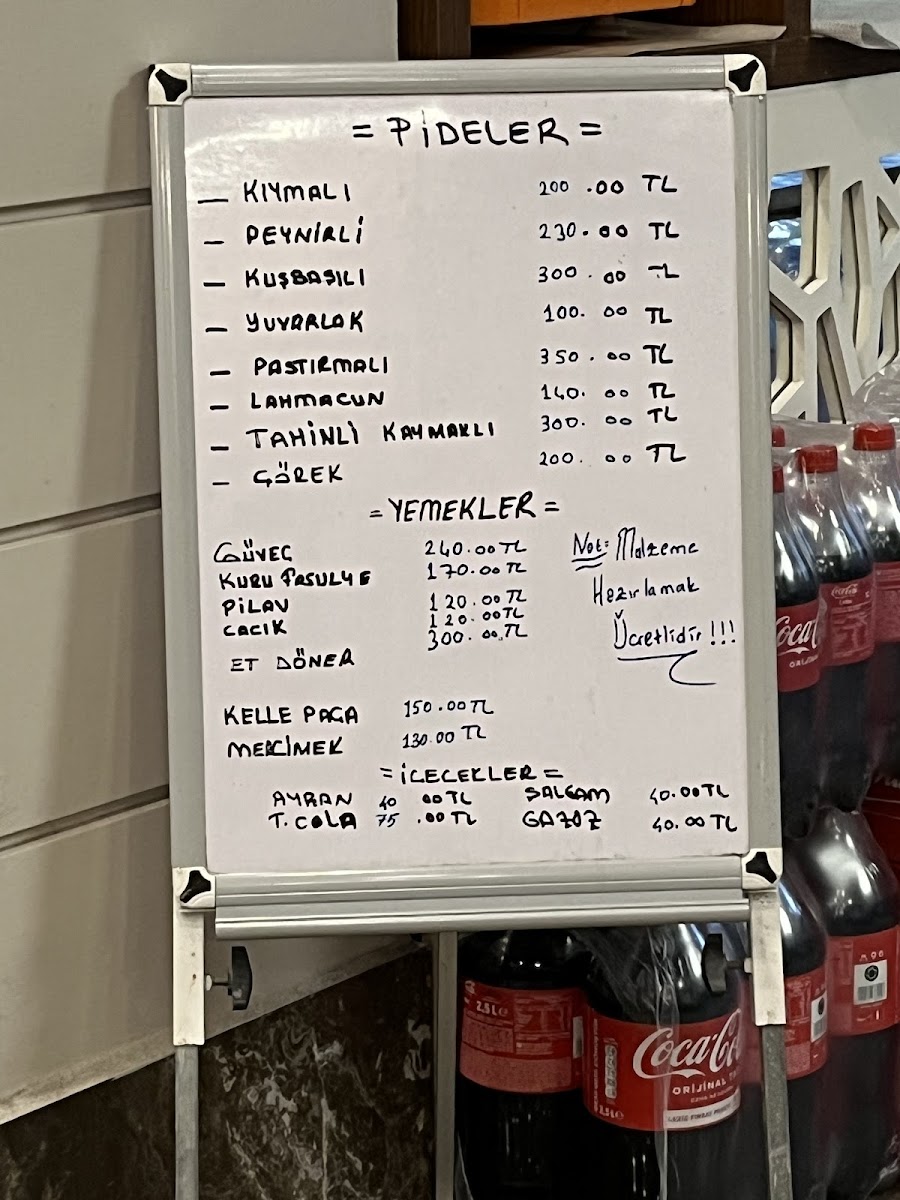 = PİDELER =
— KIYMALI 200.00 TL
— PEYNİRLİ 230.00 TL
— KUŞBAŞILI 300.00 TL
— YUVARLAK 100.00 TL
— PASTIRMALI 350.00 TL
— LAHMACUN 140.00 TL
— TAHİNLİ KAYMAKLI 300.00 TL
— ÇÖREK 200.00 TL
= YEMEKLER =
GÜVEÇ 240.00 TL
KURU FASULYE 170.00 TL
PİLAV 120.00 TL
CACIK 120.00 TL
ET DÖNER 300.00 TL
Not: Malzeme
Hazırlamak
Ücretlidir !!!
KELLE PAÇA 150.00 TL
MERCİMEK 130.00 TL
= İCECEKLER =
AYRAN 40 00 TL ŞALGAM 40.00 TL
T. COLA 75 .00 TL GAZOZ 40.00 TL
2.5L
Coca Co
ORİJİNAL T
2.5L
Coca